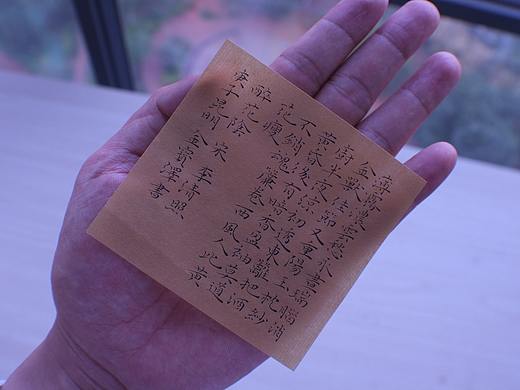 薄霧濃雲愁永晝瑞腦消
金獸佳節又重陽玉枕紗
廚半夜涼初透東籬把酒
黃昏後有暗香盈袖莫道
不銷魂簾卷西風人比黃
花瘦
醉花陰 宋 李清照
庚子昆明金賓澤書